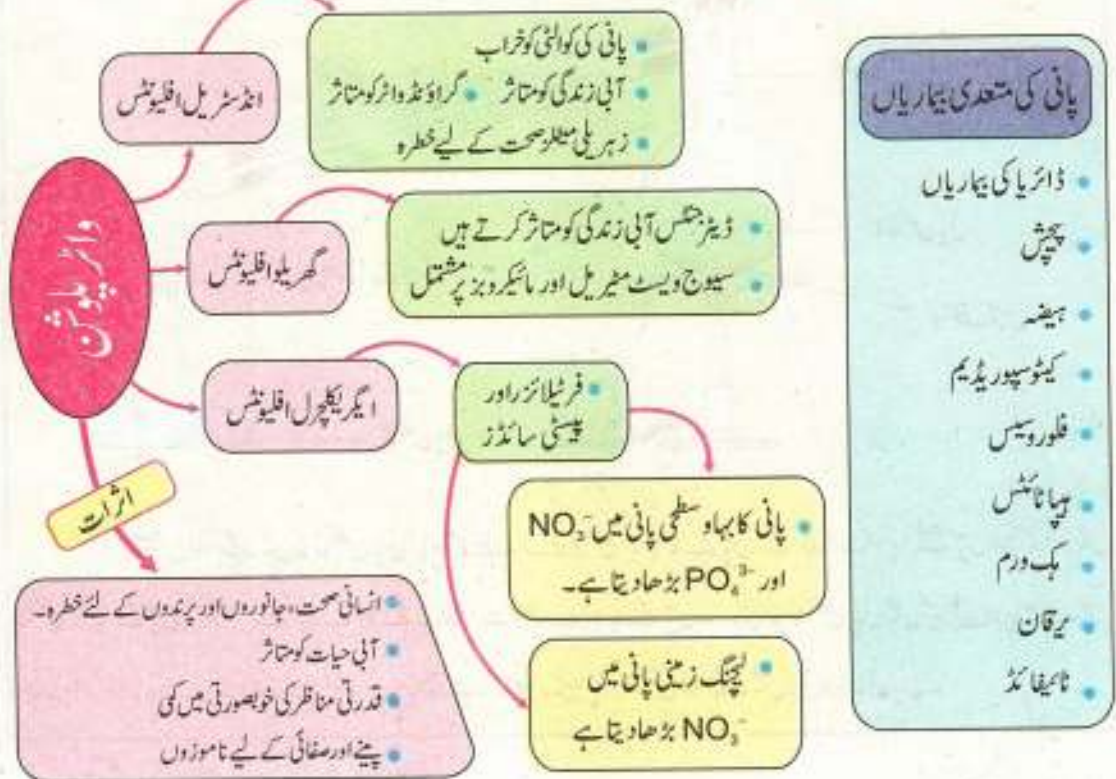 واٹر پلوشن
انڈسٹریل افلیونٹس
• پانی کی کوالٹی کو خراب
• آبی زندگی کو متاثر • گراؤنڈ واٹر کو متاثر
• زہریلی میٹلز صحت کے لیے خطرہ
گھریلو افلیونٹس
• ڈیٹرجنٹس آبی زندگی کو متاثر کرتے ہیں
• سیوج ویسٹ میٹریل اور مائیکروبز پر مشتمل
ایگریکلچرل افلیونٹس
• فرٹیلائزر اور
پیسٹی سائڈز
• پانی کا بہاو سطحی پانی میں NO₃⁻
اور PO₄³⁻ بڑھا دیتا ہے۔
• لیچنگ زمینی پانی میں
NO₃⁻ بڑھا دیتا ہے
اثرات
• انسانی صحت، جانوروں اور پرندوں کے لئے خطرہ۔
• آبی حیات کو متاثر
• قدرتی مناظر کی خوبصورتی میں کمی
• پینے اور صفائی کے لیے ناموزوں
پانی کی متعدی بیماریاں
• ڈائریا کی بیماریاں
• پیچش
• ہیضہ
• کپٹوسپوریڈیم
• فلوروسیس
• ہیپاٹائٹس
• ہک ورم
• یرقان
• ٹائیفائڈ